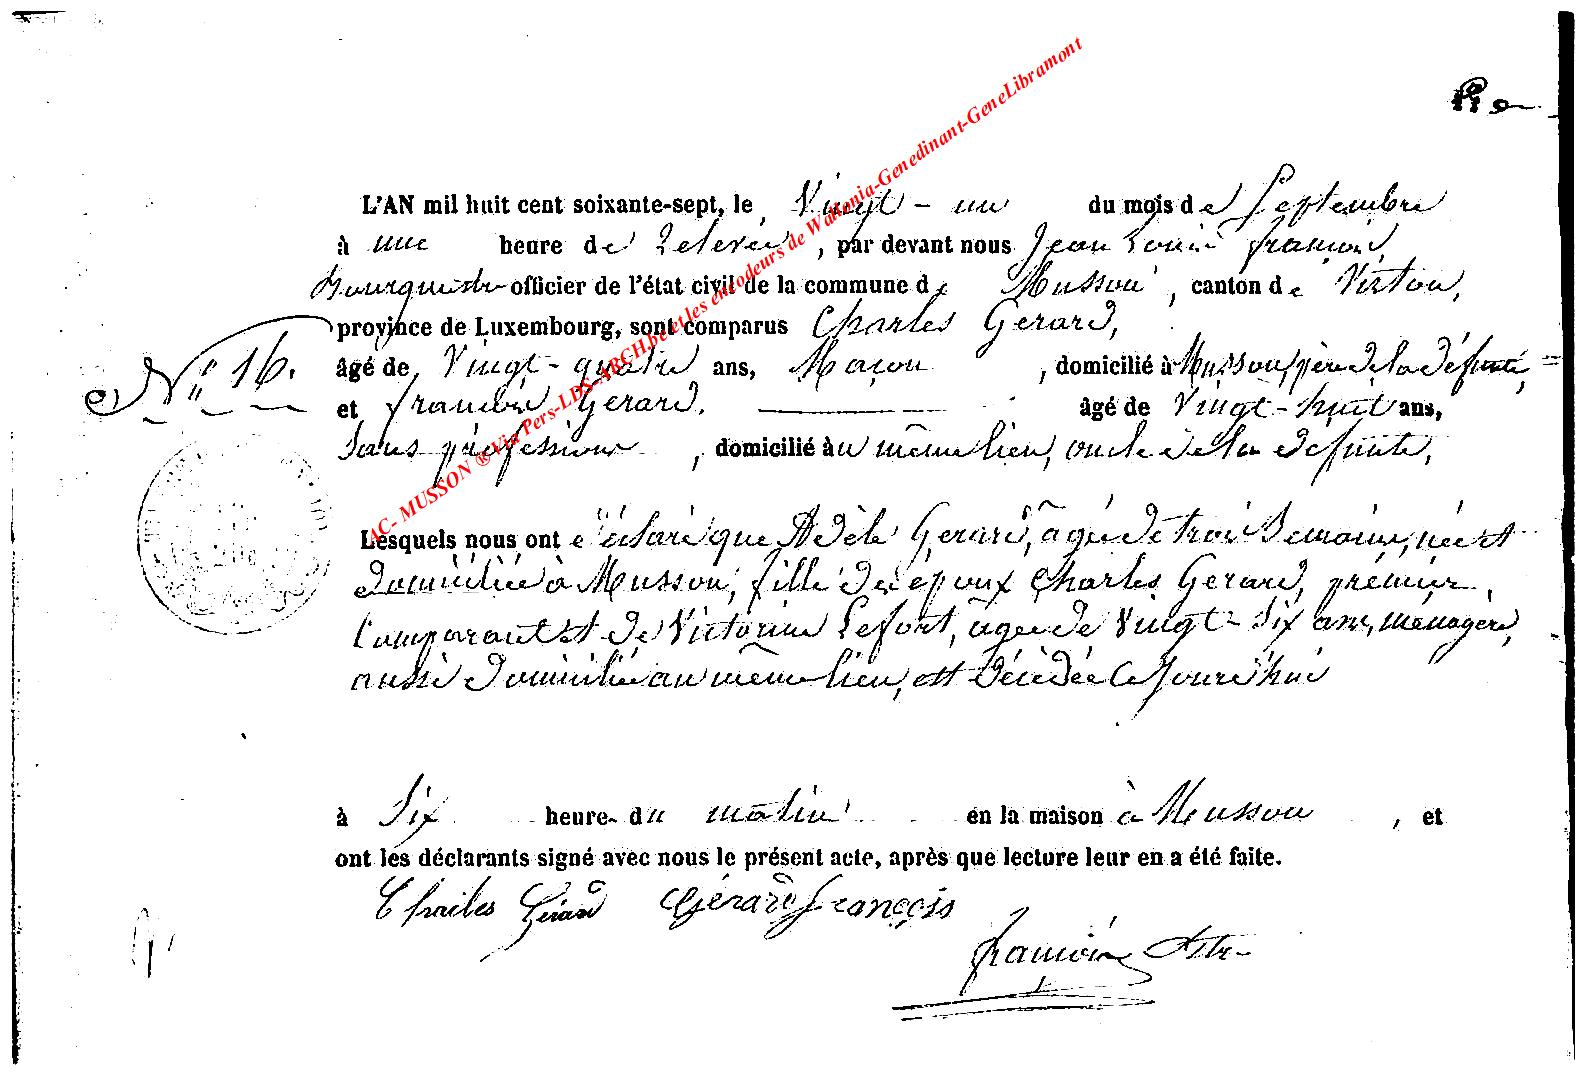 L'AN mil huit cent soixante-sept, le Vingt-un du mois de Septembre
à une heure de relevée, par devant nous Jean Louis François,
Bourgmestre officier de l'état civil de la commune de Musson, canton de Virton,
province de Luxembourg, sont comparus Charles Gerard,
N° 16.
âgé de Vingt-quatre ans, Maçon, domicilié à Musson, père de la défunte,
et François Gerard, âgé de Vingt-huit ans,
Sans profession, domicilié au même lieu, oncle de la defunte,
Lesquels nous ont déclaré que Adèle Gerard, agée de trois Semaines, née et
domiciliée à Musson, fille des époux Charles Gerard, prémier
Comparant et de Victorine Lefort, agée de Vingt-Six ans, ménagère,
aussi domiciliée au même lieu, est décédée ce jourd'hui
à Six heure du matin en la maison à Musson, et
ont les déclarants signé avec nous le présent acte, après que lecture leur en a été faite.
Charles Gérard Gérard François
François
AC- MUSSON ® Via Pers-LDS-ARCH.be et les encodeurs de Wallonia-Genedinant-GeneLibramont